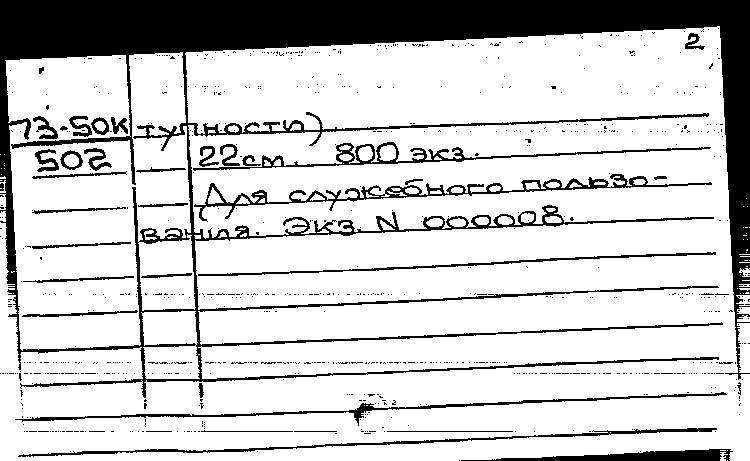 2
73-50к тупности)
502 22см. 800 экз.
Для служебного пользо-
вания. Экз. N 000008.